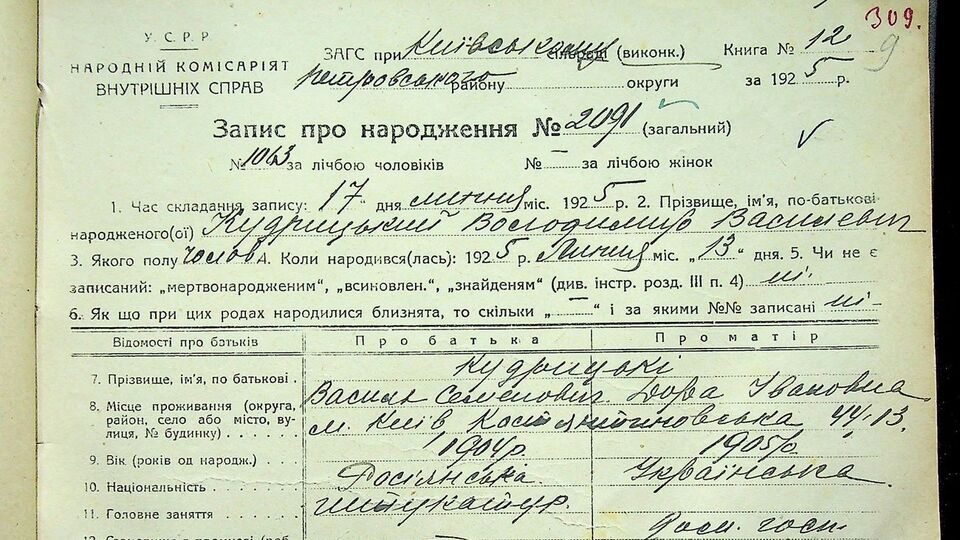 309.
9
У. С. Р. Р.
НАРОДНІЙ КОМІСАРІЯТ
ВНУТРІШНІХ СПРАВ
ЗАГС при Київському сільраді (виконк.) Книга № 12
Петровського району округи за 1925 р.
Запис про народження № 2091 (загальний)
№ 1063 за лічбою чоловіків № — за лічбою жінок
1. Час складання запису: 17 " дня липня міс. 1925 р. 2. Прізвище, ім'я, по-батькові
народженого(ої) Кудрицький Володимир Василевич
3. Якого полу чолов 4. Коли народився(лась): 1925 р. Липня міс. „ 13 " дня. 5. Чи не є
записаний: „мертвонародженим", „всиновлен.", „знайденям" (див. інстр. розд. III п. 4) ні
6. Як що при цих родах народилися близнята, то скільки „ — " і за якими №№ записані ні
Відомості про батьків Про батька Про матір
Кудрицькі
7. Прізвище, ім'я, по батькові . Василь Семенович Дора Івановна
8. Місце проживання (округа, район, село або місто, вулиця, № будинку) м. Київ Костянтиновська 44-13.
9. Вік (років од народж.) 1904 р 1905 р.
10. Національність Росіянська Українська
11. Головне заняття штукатур. дом. госп.